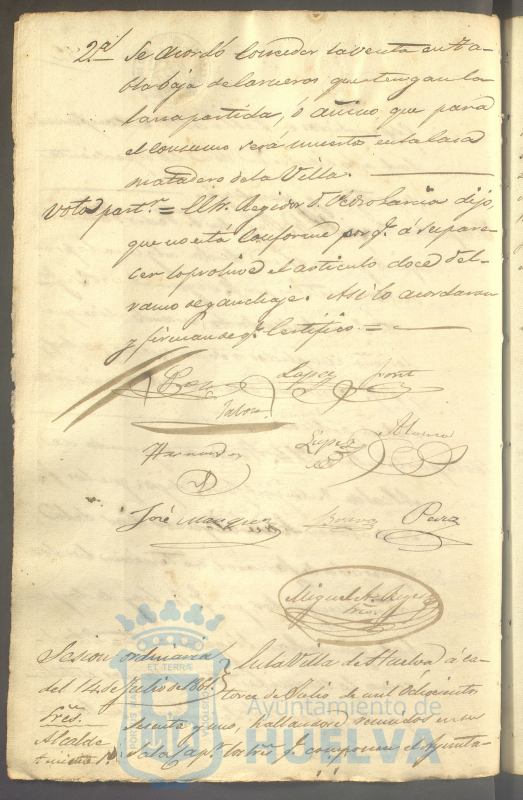 2.a Se acordó conceder la venta en tabla baja de carneros que tengan la
lana partida, ó añino, que para
el consumo será muerto en la casa
matadero de la Villa.
Voto partr. = El Sr. Regidor D. Pedro Garcia dijo,
que no está conforme por qe. á su parecer lo prohive el articulo doce del
ramo de ganchaje. Asi lo acordaron
y firman de qe. Certifico. =
Lopez
Hernandez
Lopez
Alonso
José Marquez
Perez
Miguel
Srio.
Sesion ordinaria
del 14 de Julio de 1861.
Sres.
Alcalde
En la Villa de Huelva á catorce de Julio de mil ochocientos
sesenta y uno, hallandose reunidos en su
Sala Capr. los Sres. qe. componen el Ayunta-
Ayuntamiento de
HUELVA
ET TERRAE
PORTUS